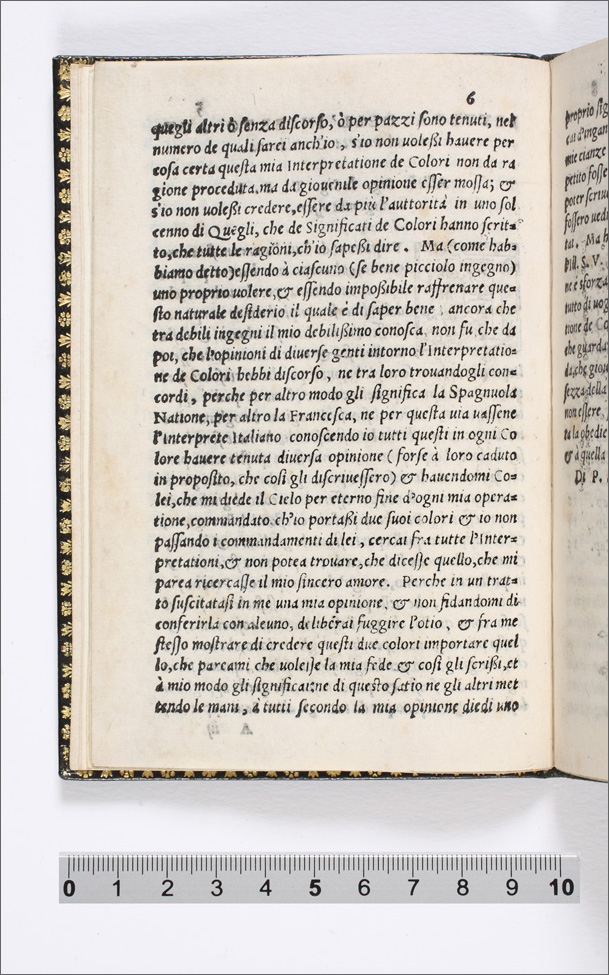 6
quegli altri ò senza discorso, ò per pazzi sono tenuti, nel
numero de quali sarei anch'io, s'io non uoleßi hauere per
cosa certa questa mia Interpretatione de Colori non da ra
gione proceduta, ma da giouenile opinione esser mossa; &
s'io non uoleßi credere, essere da più l'auttorità in uno sol
cenno di Quegli, che de Significati de Colori hanno scrit=
to, che tutte le ragioni, ch'io sapeßi dire. Ma (come hab=
biamo detto) essendo à ciascuno (se bene picciolo ingegno)
uno proprio uolere, & essendo impoßibile raffrenare que=
sto naturale desiderio il quale è di saper bene, ancora che
tra debili ingegni il mio debilißimo conosca, non fu, che da
poi, che l'opinioni di diuerse genti intorno l'Interpretatio=
ne de Colori hebbi discorso, ne tra loro trouandogli con=
cordi, perche per altro modo gli significa la Spagnuola
Natione, per altro la Francesca, ne per questa uia uassene
l'Interprete Italiano conoscendo io tutti questi in ogni Co
lore hauere tenuta diuersa opinione (forse à loro caduto
in proposito, che così gli discriuessero) & hauendomi Co=
lei, che mi diede il Cielo per eterno fine d'ogni mia opera=
tione, commandato, ch'io portaßi due suoi colori & io non
passando i commandamenti di lei, cercai fra tutte l'Inter=
pretationi, & non potea trouare, che dicesse quello, che mi
parea ricercasse il mio sincero amore. Perche in un trat=
to suscitatasi in me una mia opinione, & non fidandomi di
conferirla con alcuno, deliberai fuggire l'otio, & fra me
stesso mostrare di credere questi due colori importare quel
lo, che pareami che uolesse la mia fede & così gli scrißi, et
à mio modo gli significai: ne di questo satio ne gli altri met
tendo le mani, à tutti secondo la mia opinione diedi uno
proprio sig
petito fosse
poter scriue
fossero ued
tai. Ma h
Ill. S. V.
ne è sforza
tutto di uog
none de Co
che guarda
non essere,
& à quella
Di P.
0 1 2 3 4 5 6 7 8 9 10